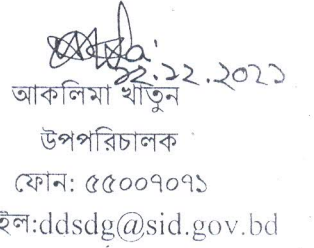 ২২.১২.২০২১
আকলিমা খাতুন
উপপরিচালক
ফোন: ৫৫০০৭০৭১
ইল:ddsdg@sid.gov.bd